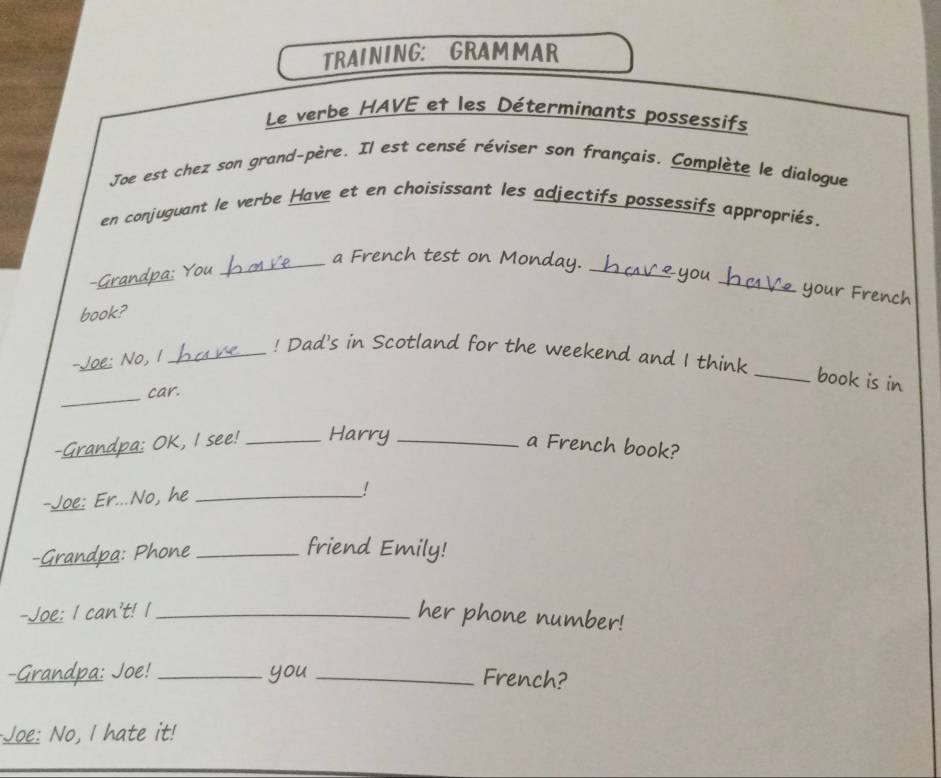 TRAINING: GRAMMAR
Le verbe HAVE et les Déterminants possessifs
Joe est chez son grand-père. Il est censé réviser son français. Complète le dialogue
en conjuguant le verbe Have et en choisissant les adjectifs possessifs appropriés.
-Grandpa: You have a French test on Monday. have you have your French
book?
-Joe: No, I have ! Dad's in Scotland for the weekend and I think ______ book is in
________ car.
-Grandpa: OK, I see! ________ Harry ____________ a French book?
-Joe: Er...No, he ________________!
-Grandpa: Phone __________ friend Emily!
-Joe: I can't! I ________________________ her phone number!
-Grandpa: Joe! __________ you ________________ French?
-Joe: No, I hate it!